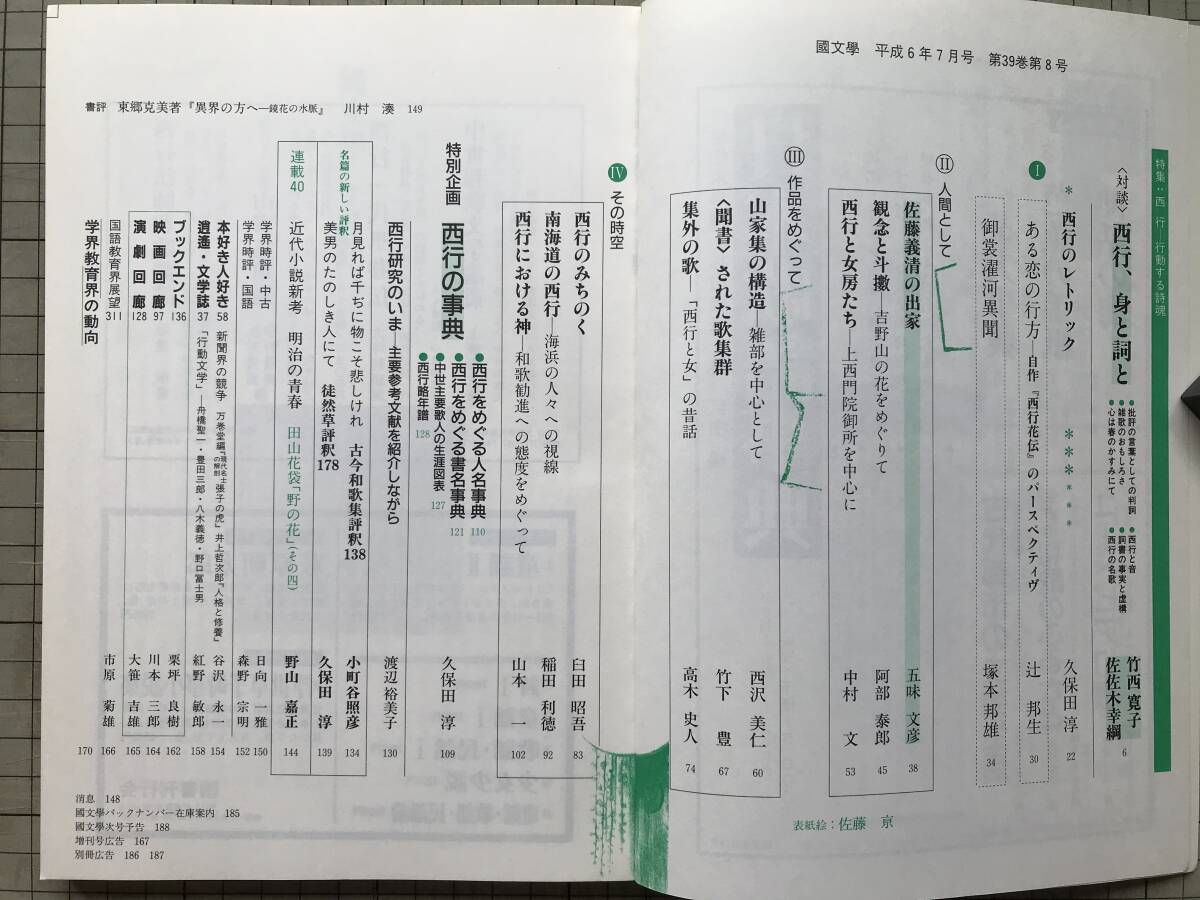 國文學　平成6年7月号　第39巻第8号
特集：西行―行動する詩魂
〈対談〉西行、身と詞と
●批評の言葉としての判詞
●雑歌のおもしろさ
●心は春のかすみにて
●西行と音
●詞書の事実と虚構
●西行の名歌
竹西寛子
佐佐木幸綱 6
＊ 西行のレトリック ＊＊＊＊＊＊ 久保田 淳 22
Ⅰ ある恋の行方―自作『西行花伝』のパースペクティヴ 辻 邦生 30
御裳濯河異聞 塚本邦雄 34
Ⅱ 人間として
佐藤義清の出家 五味 文彦 38
観念と斗擻―吉野山の花をめぐりて 阿部 泰郎 45
西行と女房たち―上西門院御所を中心に 中村 文 53
Ⅲ 作品をめぐって
山家集の構造―雑部を中心として 西沢 美仁 60
〈聞書〉された歌集群 竹下 豊 67
集外の歌―「西行と女」の昔話 高木 史人 74
表紙絵：佐藤 亰
Ⅳ その時空
西行のみちのく 臼田 昭吾 83
南海道の西行―海浜の人々への視線 稲田 利徳 92
西行における神―和歌勧進への態度をめぐって 山本 一 102
特別企画 西行の事典 久保田 淳 109
●西行をめぐる人名事典 110
●西行をめぐる書名事典 121
●中世主要歌人の生涯図表 127
●西行略年譜 128
西行研究のいま 主要参考文献を紹介しながら 渡辺 裕美子 130
名篇の新しい評釈
月見れば千ぢに物こそ悲しけれ 古今和歌集評釈 138 小町谷照彦 134
美男のたのしき人にて 徒然草評釈 178 久保田 淳 139
連載40 近代小説新考 明治の青春 田山花袋「野の花」(その四) 野山 嘉正 144
学界時評・中古 日向 一雅 150
学界時評・国語 森野 宗明 152
本好き人好き 58 新聞界の競争 万巻堂編『現代名士の解剖 張子の虎』 井上哲次郎『人格と修養』 谷沢 永一 154
逍遙・文学誌 37 「行動文学」―舟橋聖一・豊田三郎・八木義徳・野口冨士男 紅野 敏郎 158
ブックエンド 136 栗坪 良樹 162
映画回廊 97 川本 三郎 164
演劇回廊 128 大笹 吉雄 165
国語教育界展望 311 市原 菊雄 166
学界教育界の動向 170
書評 東郷克美著『異界の方へ―鏡花の水脈』 川村 湊 149
消息 148
國文學バックナンバー在庫案内 185
國文學次号予告 188
増刊号広告 167
別冊広告 186 187